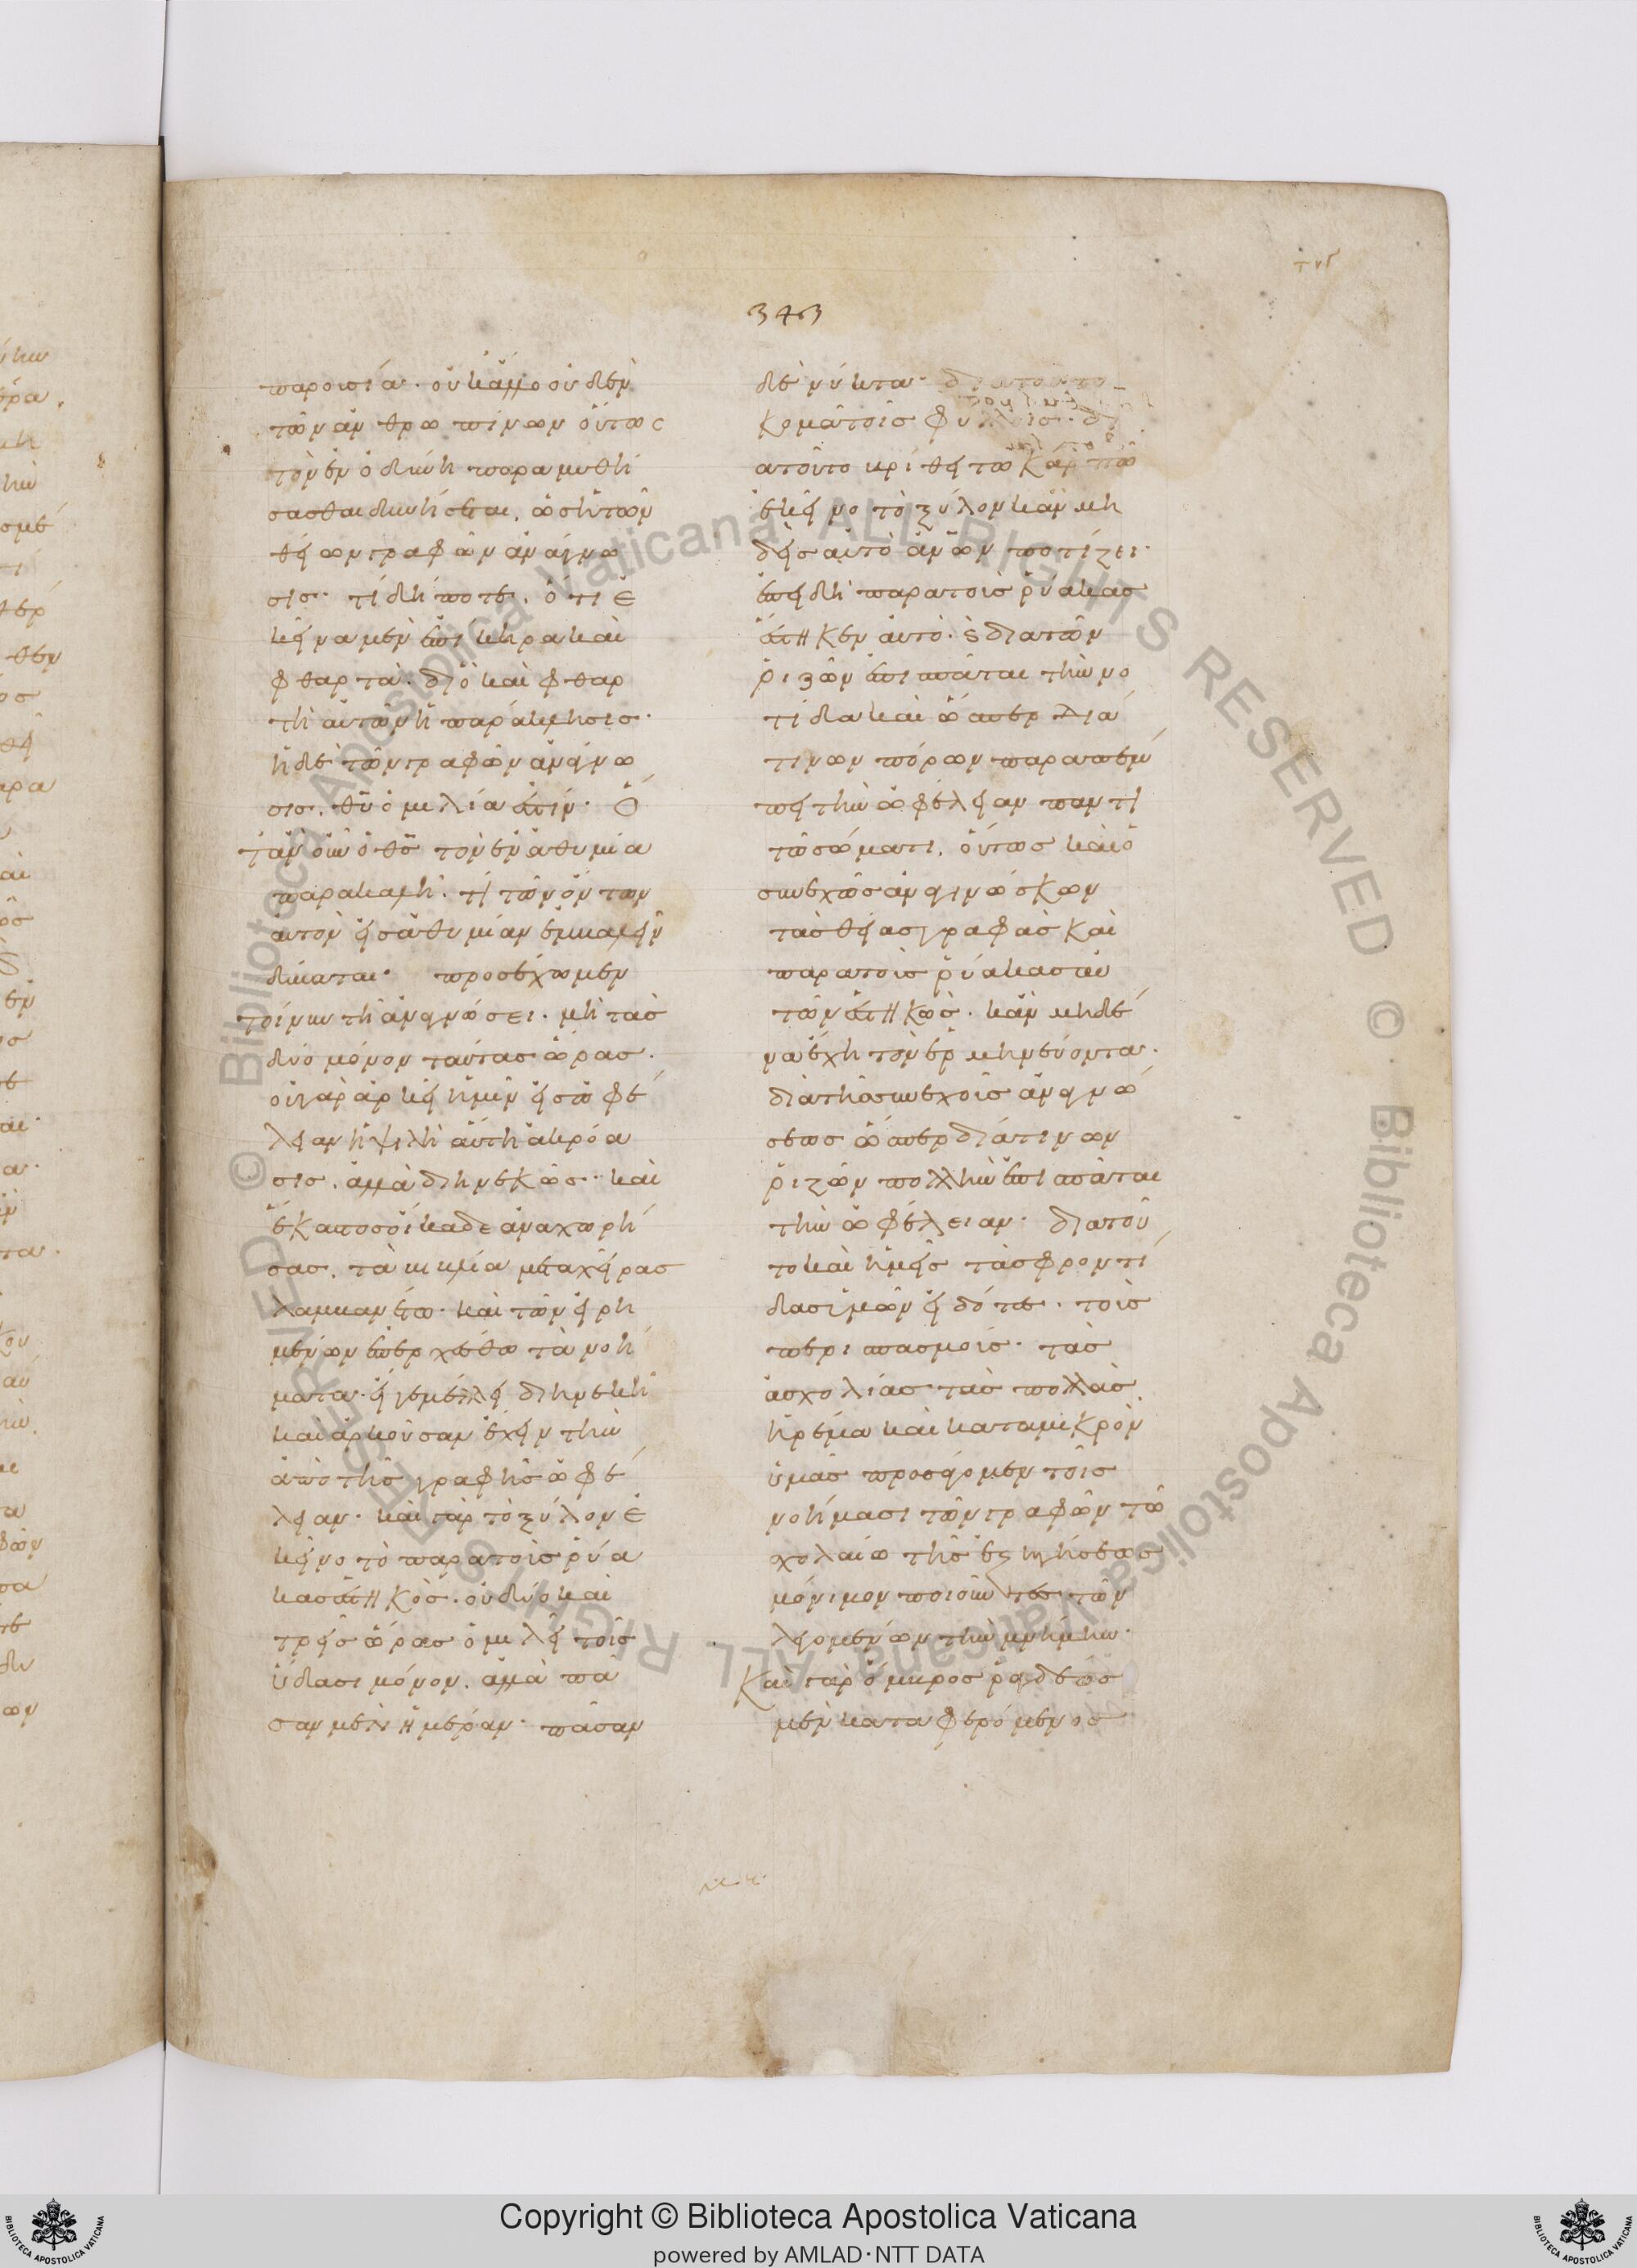 343
παροινία· οὐκ ἄλλο οὐδὲν
τῶν ἀνθρωπίνων οὕτως
τὸν ἐν ὀδύνη παραμυθή
σασθαι δυνήσεται, ὡς ἡ τῶν
θείων γραφῶν ἀνάγνω
σις· τί δήποτε, ὅτι ἐ
κεῖνα μὲν ἐπίκηρα καὶ
φθαρτὰ· διὸ καὶ φθαρ
τὴ αὐτῶν ἡ παράκλησις·
ἡ δὲ τῶν γραφῶν ἀνάγνω
σις, θυ ὁμιλία ἐστίν· Ὅ
ταν οὖν ὁ θσ τὸν ἐν ἀθυμία
παρακαλῆ, τί τῶν ὄντων
αὐτὸν εἰς ἀθυμίαν ἐμβαλεῖν
δύναται· προσέχωμεν
τοίνυν τῆ ἀναγνώσει· μὴ τὰς
δύο μόνον ταύτας ὥρας·
οὐ γὰρ ἀρκεῖ ἡμῖν εἰς ὠφέ
λειαν ἡ ψιλὴ αὕτη ἀκρόα
σις, ἀλλὰ διηνεκῶς· καὶ
ἕκαστος οἴκαδε ἀναχωρή
σας, τὰ βιβλία μεταχεῖρας
λαμβανέτω· καὶ τῶν εἰρη
μένων ἐπερχέσθω τὰ νοή
ματα· εἴ γε μέλλει διηνεκῆ
καὶ ἀρκοῦσαν ἔχειν τὴν
ἀπὸ τῆς γραφῆς ὠφέ
λειαν· καὶ γὰρ τὸ ξύλον ἐ
κεῖνο τὸ παρὰ τοὺς ῥύα
κας ἑστηκὸς· οὐ δύο καὶ
τρεῖς ὥρας ὁμιλεῖ τοῖς
ὕδασι μόνον, ἀλλὰ πᾶ
σαν μὲν ἡμέραν· πᾶσαν
δὲ νύκτα· διατοῦτο
κομᾶ τοῖς φύλλοις· δι
ατοῦτο βρίθει τῶ καρπῶ
ἐκεῖνο τὸ ξύλον κἂν μη
δεὶς αὐτὸ ἀνων ποτίζει·
ἐπειδὴ παρὰ τοὺς ῥύακας
ἕστηκεν αὐτὸ· διὰ τῶν
ῥιζῶν ἐπισπᾶται τὴν νο
τίδα καὶ ὥσπερ διά
τινων πόρων παραπέμ
πει τὴν ὠφέλειαν παντὶ
τῶ σώματι, οὕτως καὶ ὁ
συνεχῶς ἀναγινώσκων
τὰς θείας γραφὰς καὶ
παρὰ τοὺς ῥύακας αὐ
τῶν ἑστηκὼς· κἂν μηδέ
να ἔχη τὸν ἑρμηνεύοντα·
διὰ τῆς συνεχοῦς ἀναγνώ
σεως ὥσπερ διά τινων
ῥιζῶν πολλὴν ἐπισπᾶται
τὴν ὠφέλειαν· διατοῦ
το καὶ ἡμεῖς τὰς φροντί
δας ὑμῶν εἰδότες· τοὺς
περισπασμοὺς· τὰς
ἀσχολίας τὰς πολλὰς,
ἠρέμα καὶ κατὰ μικρὸν
ὑμᾶς προσάγομεν τοῖς
νοήμασι τῶν γραφῶν τῶ
σχολαίω τῆς ἐξηγήσεως
μόνιμον ποιοῦντες τῶν
λεγομένων τὴν μνήμην·
Καὶ γὰρ ὄμβρος ῥαγδαίως
μὲν καταφερόμενος
Copyright © Biblioteca Apostolica Vaticana
powered by AMLAD·NTT DATA